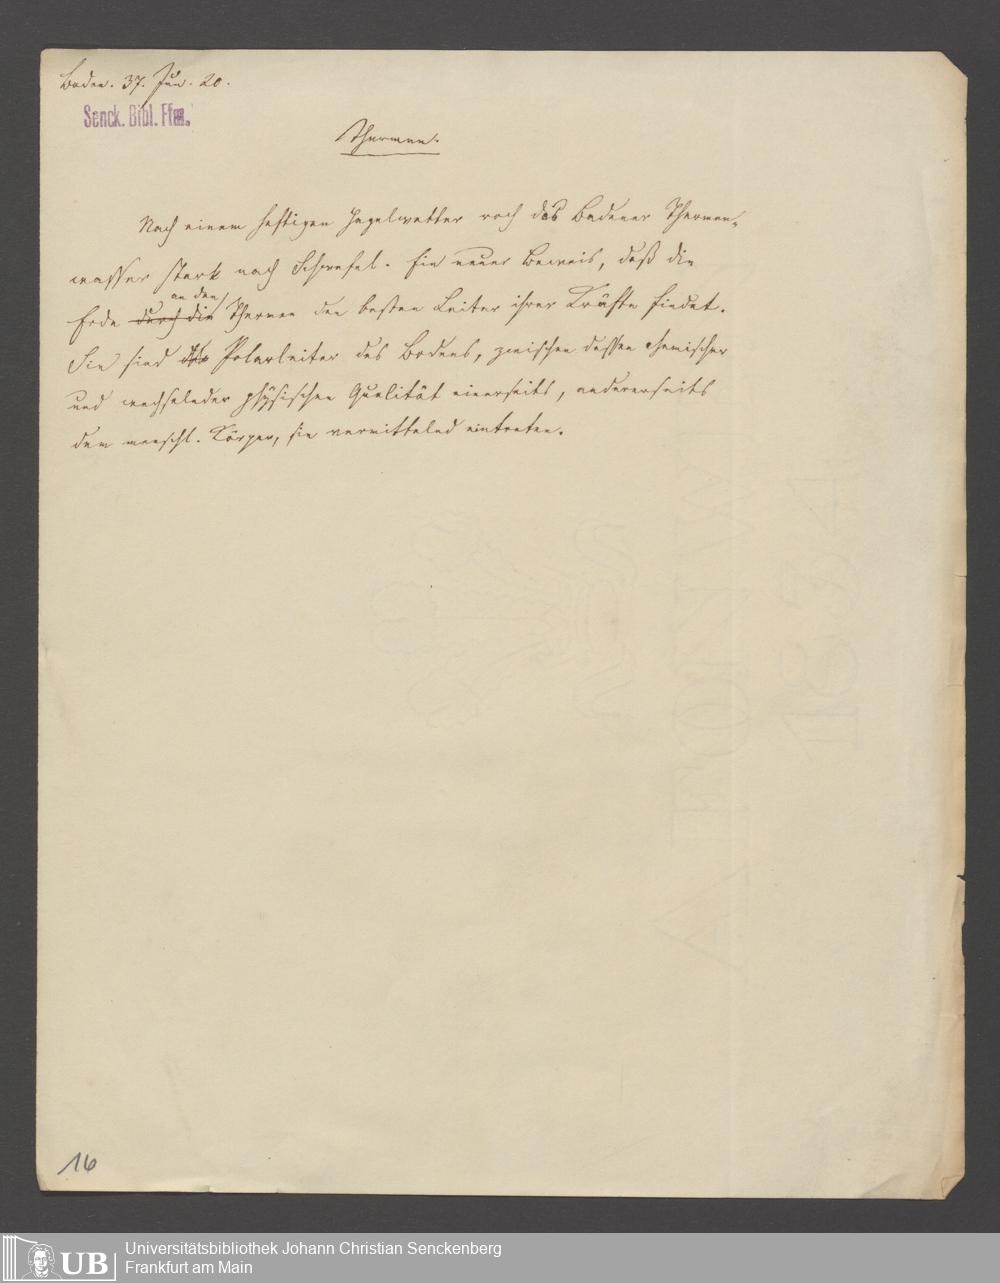 Baden. 37. Jun. 20.
Senck. Bibl. Ffm.
Thermen.
Nach einem heftigen Hagelwetter roch das Badener Thermen-
wasser stark nach Schwefel. Ein neuer Beweis, daß die
an den
Erde durch die Thermen den besten Leiter ihrer Kräfte findet.
Sie sind Polarleiter des Bodens, zwischen dessen chemischer
und wechselnder physischen Qualität einerseits, andererseits
dem menschl. Körper, sie vermittelnd eintreten.
ATONW
1834
16
UB
Universitätsbibliothek Johann Christian Senckenberg
Frankfurt am Main